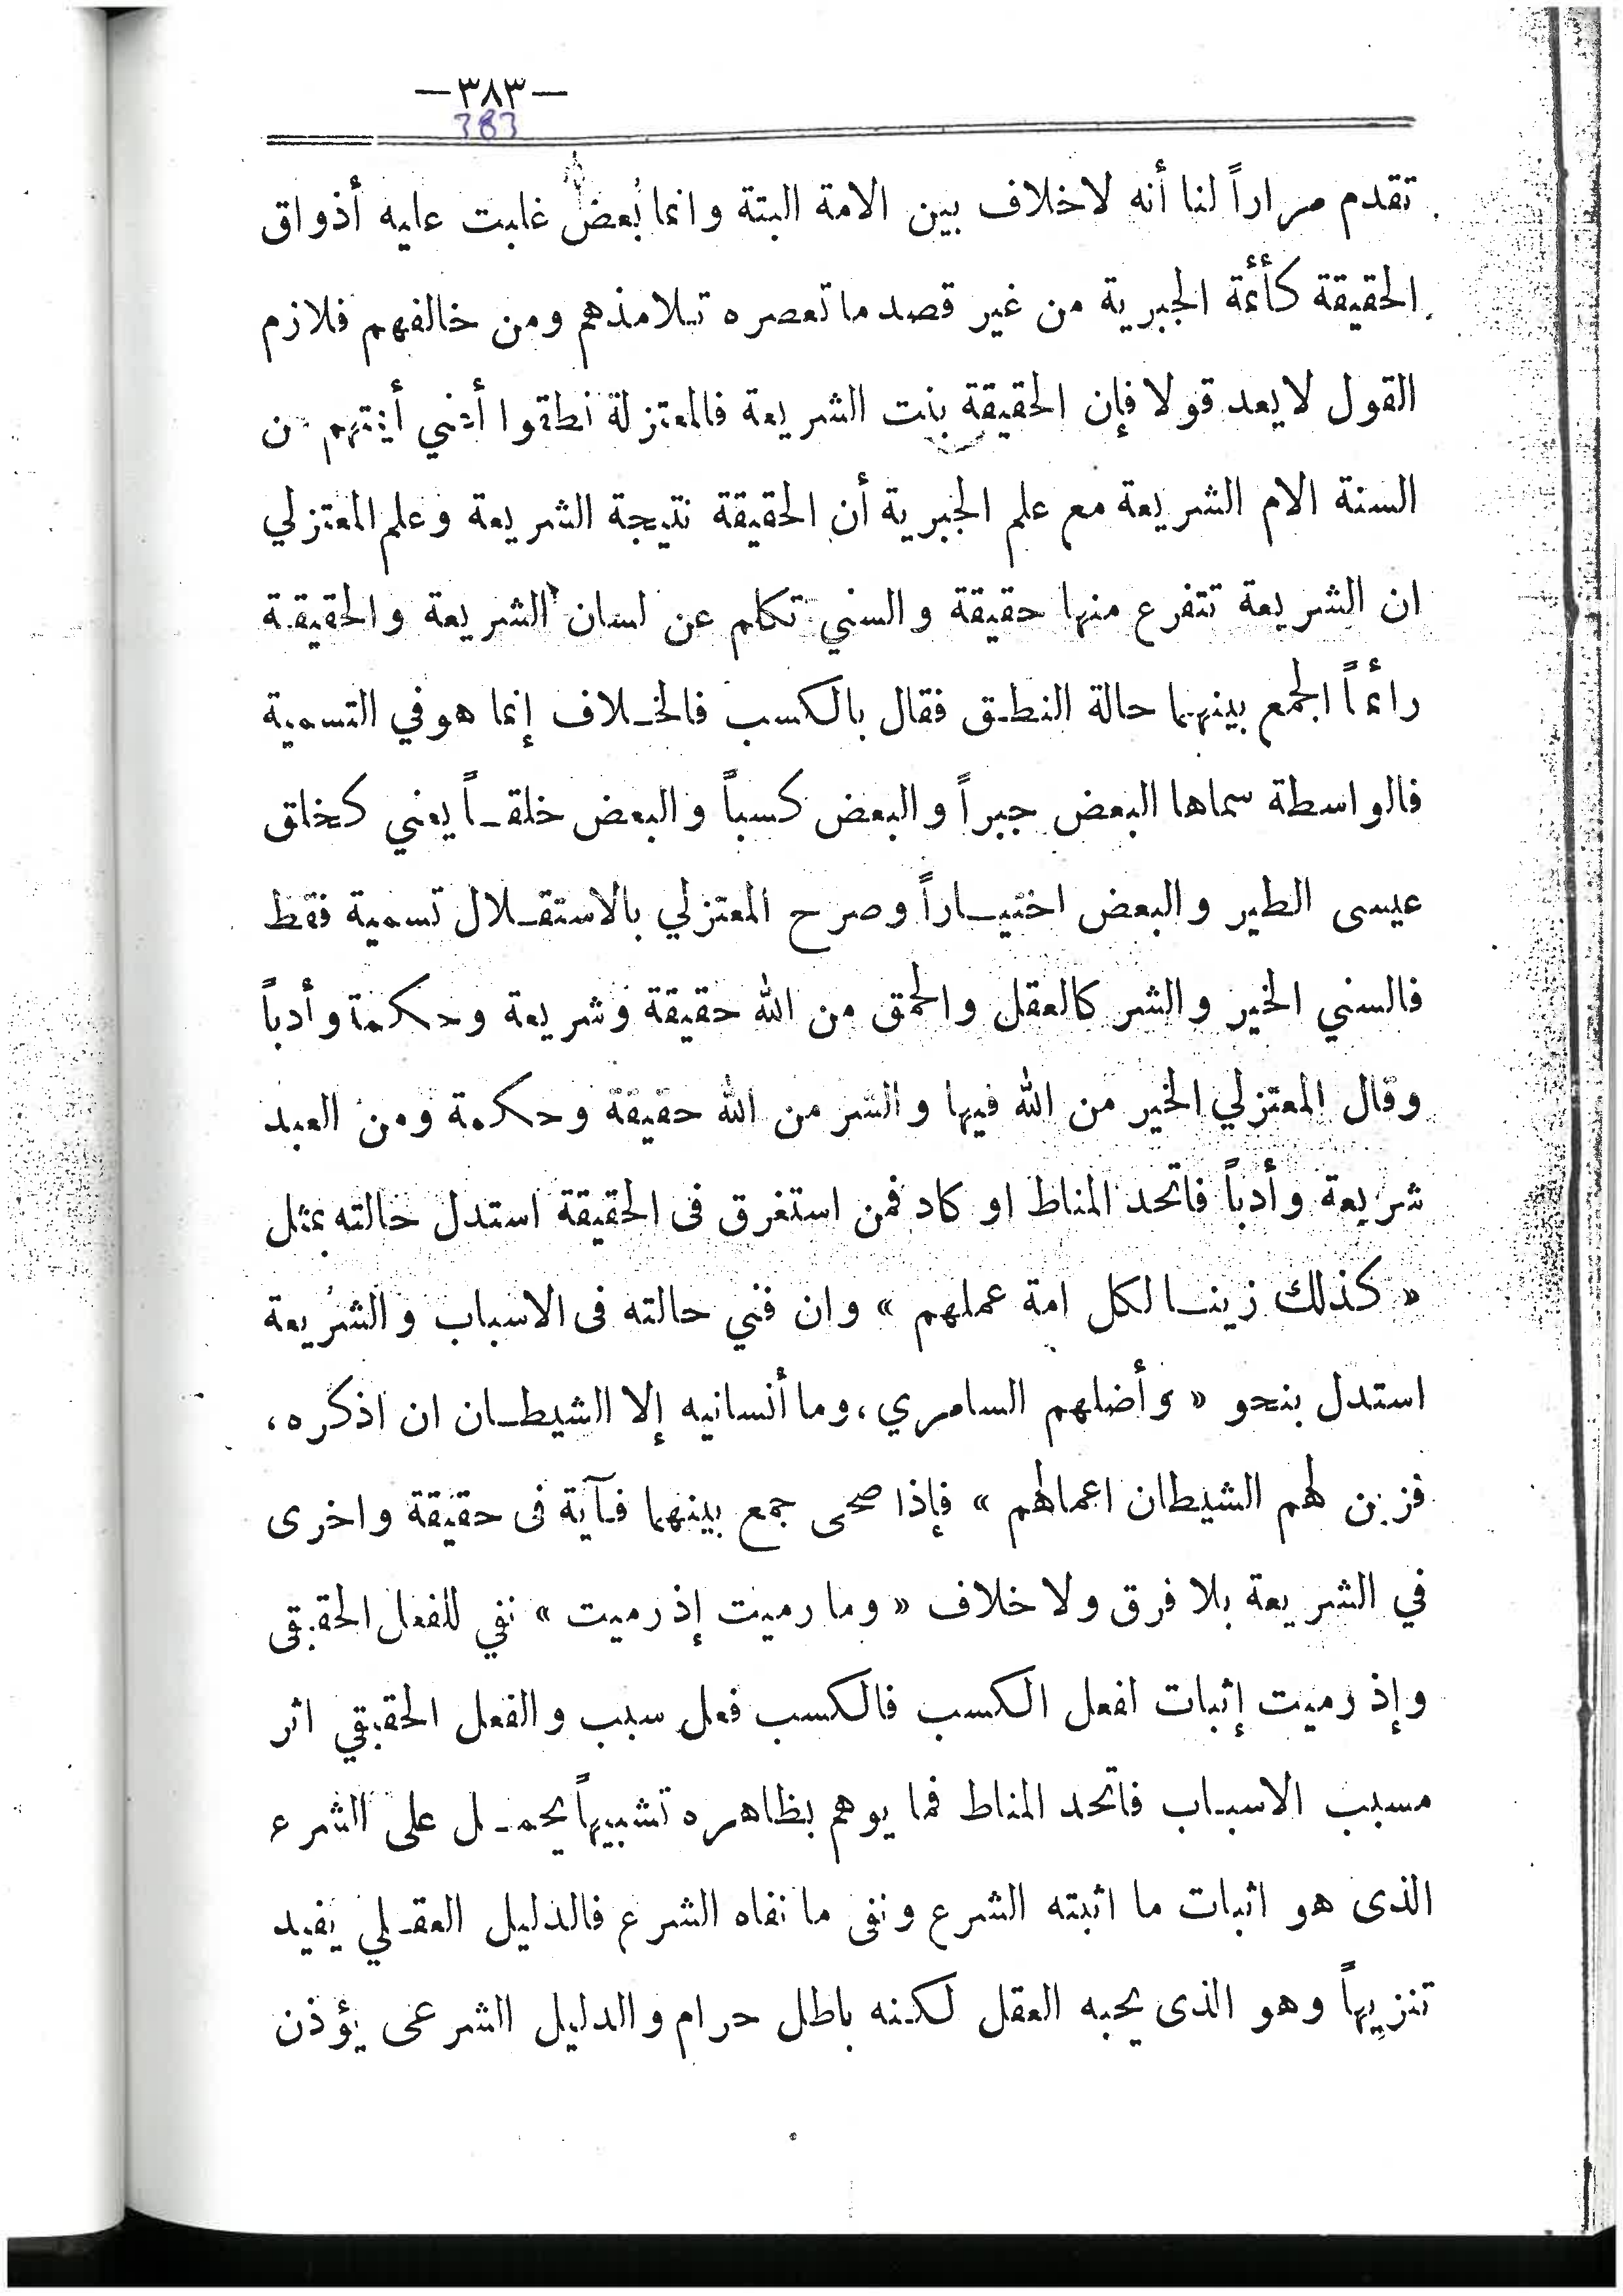 —٣٨٣—
383
تقدم مراراً لنا أنه لاخلاف بين الامة البتة وانما بُعض غلبت عليه أذواق
الحقيقة كأئمة الجبرية من غير قصد ما تعصره تلامذهم ومن خالفهم فلازم
القول لا يعد قولا فإن الحقيقة بنت الشريعة فالمعتزلة نطقوا أعني أئمتهم من
السنة الام الشريعة مع علم الجبرية أن الحقيقة نتيجة الشريعة وعلم المعتزلي
ان الشريعة تتفرع منها حقيقة والسني تكلم عن لسان الشريعة والحقيقة
رائماً الجمع بينهما حالة النطق فقال بالكسب فالخلاف إنما هو في التسمية
فالواسطة سماها البعض جبراً والبعض كسباً والبعض خلقاً يعني كخلق
عيسى الطير والبعض اختياراً وصرح المعتزلي بالاستقلال تسمية فقط
فالسني الخير والشر كالعقل والحمق من الله حقيقة وشريعة وحكمة وأدباً
وقال المعتزلي الخير من الله فيها والشر من الله حقيقة وحكمة ومن العبد
شريعة وأدباً فاتحد المناط او كاد فمن استغرق فى الحقيقة استدل حالته بمثل
« كذلك زينا لكل امة عملهم » وان فني حالته فى الاسباب والشريعة
استدل بنحو « وأضلهم السامري، وما أنسانيه إلا الشيطان ان اذكره،
فزين لهم الشيطان اعمالهم » فإذا صحى جمع بينهما فآية فى حقيقة واخرى
في الشريعة بلا فرق ولا خلاف « وما رميت إذ رميت » نفي للفعل الحقيقى
وإذ رميت إثبات لفعل الكسب فالكسب فعل سبب والفعل الحقيقي اثر
مسبب الاسباب فاتحد المناط فما يوهم بظاهره تشبيهاً يحمل على الشرع
الذى هو اثبات ما اثبته الشرع ونفى ما نفاه الشرع فالدليل العقلي يفيد
تنزيهاً وهو الذى يحبه العقل لكنه باطل حرام والدليل الشرعى يؤذن